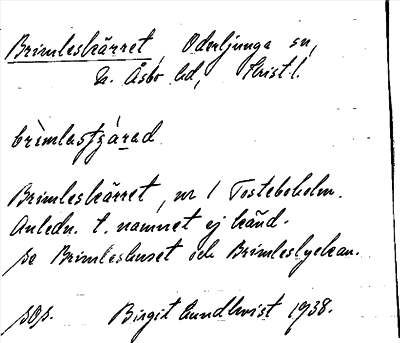 Brimleskärret, Oderljunga sn,
n. Åsbo hd, Krist. l.
brìmlastjárad
Brimleskärret, nr 1 Tosteboholm.
Anledn. t. namnet ej känd.
se Brimleshuset och Brimleslyckan.
sos. Birgit Lundkvist 1938.